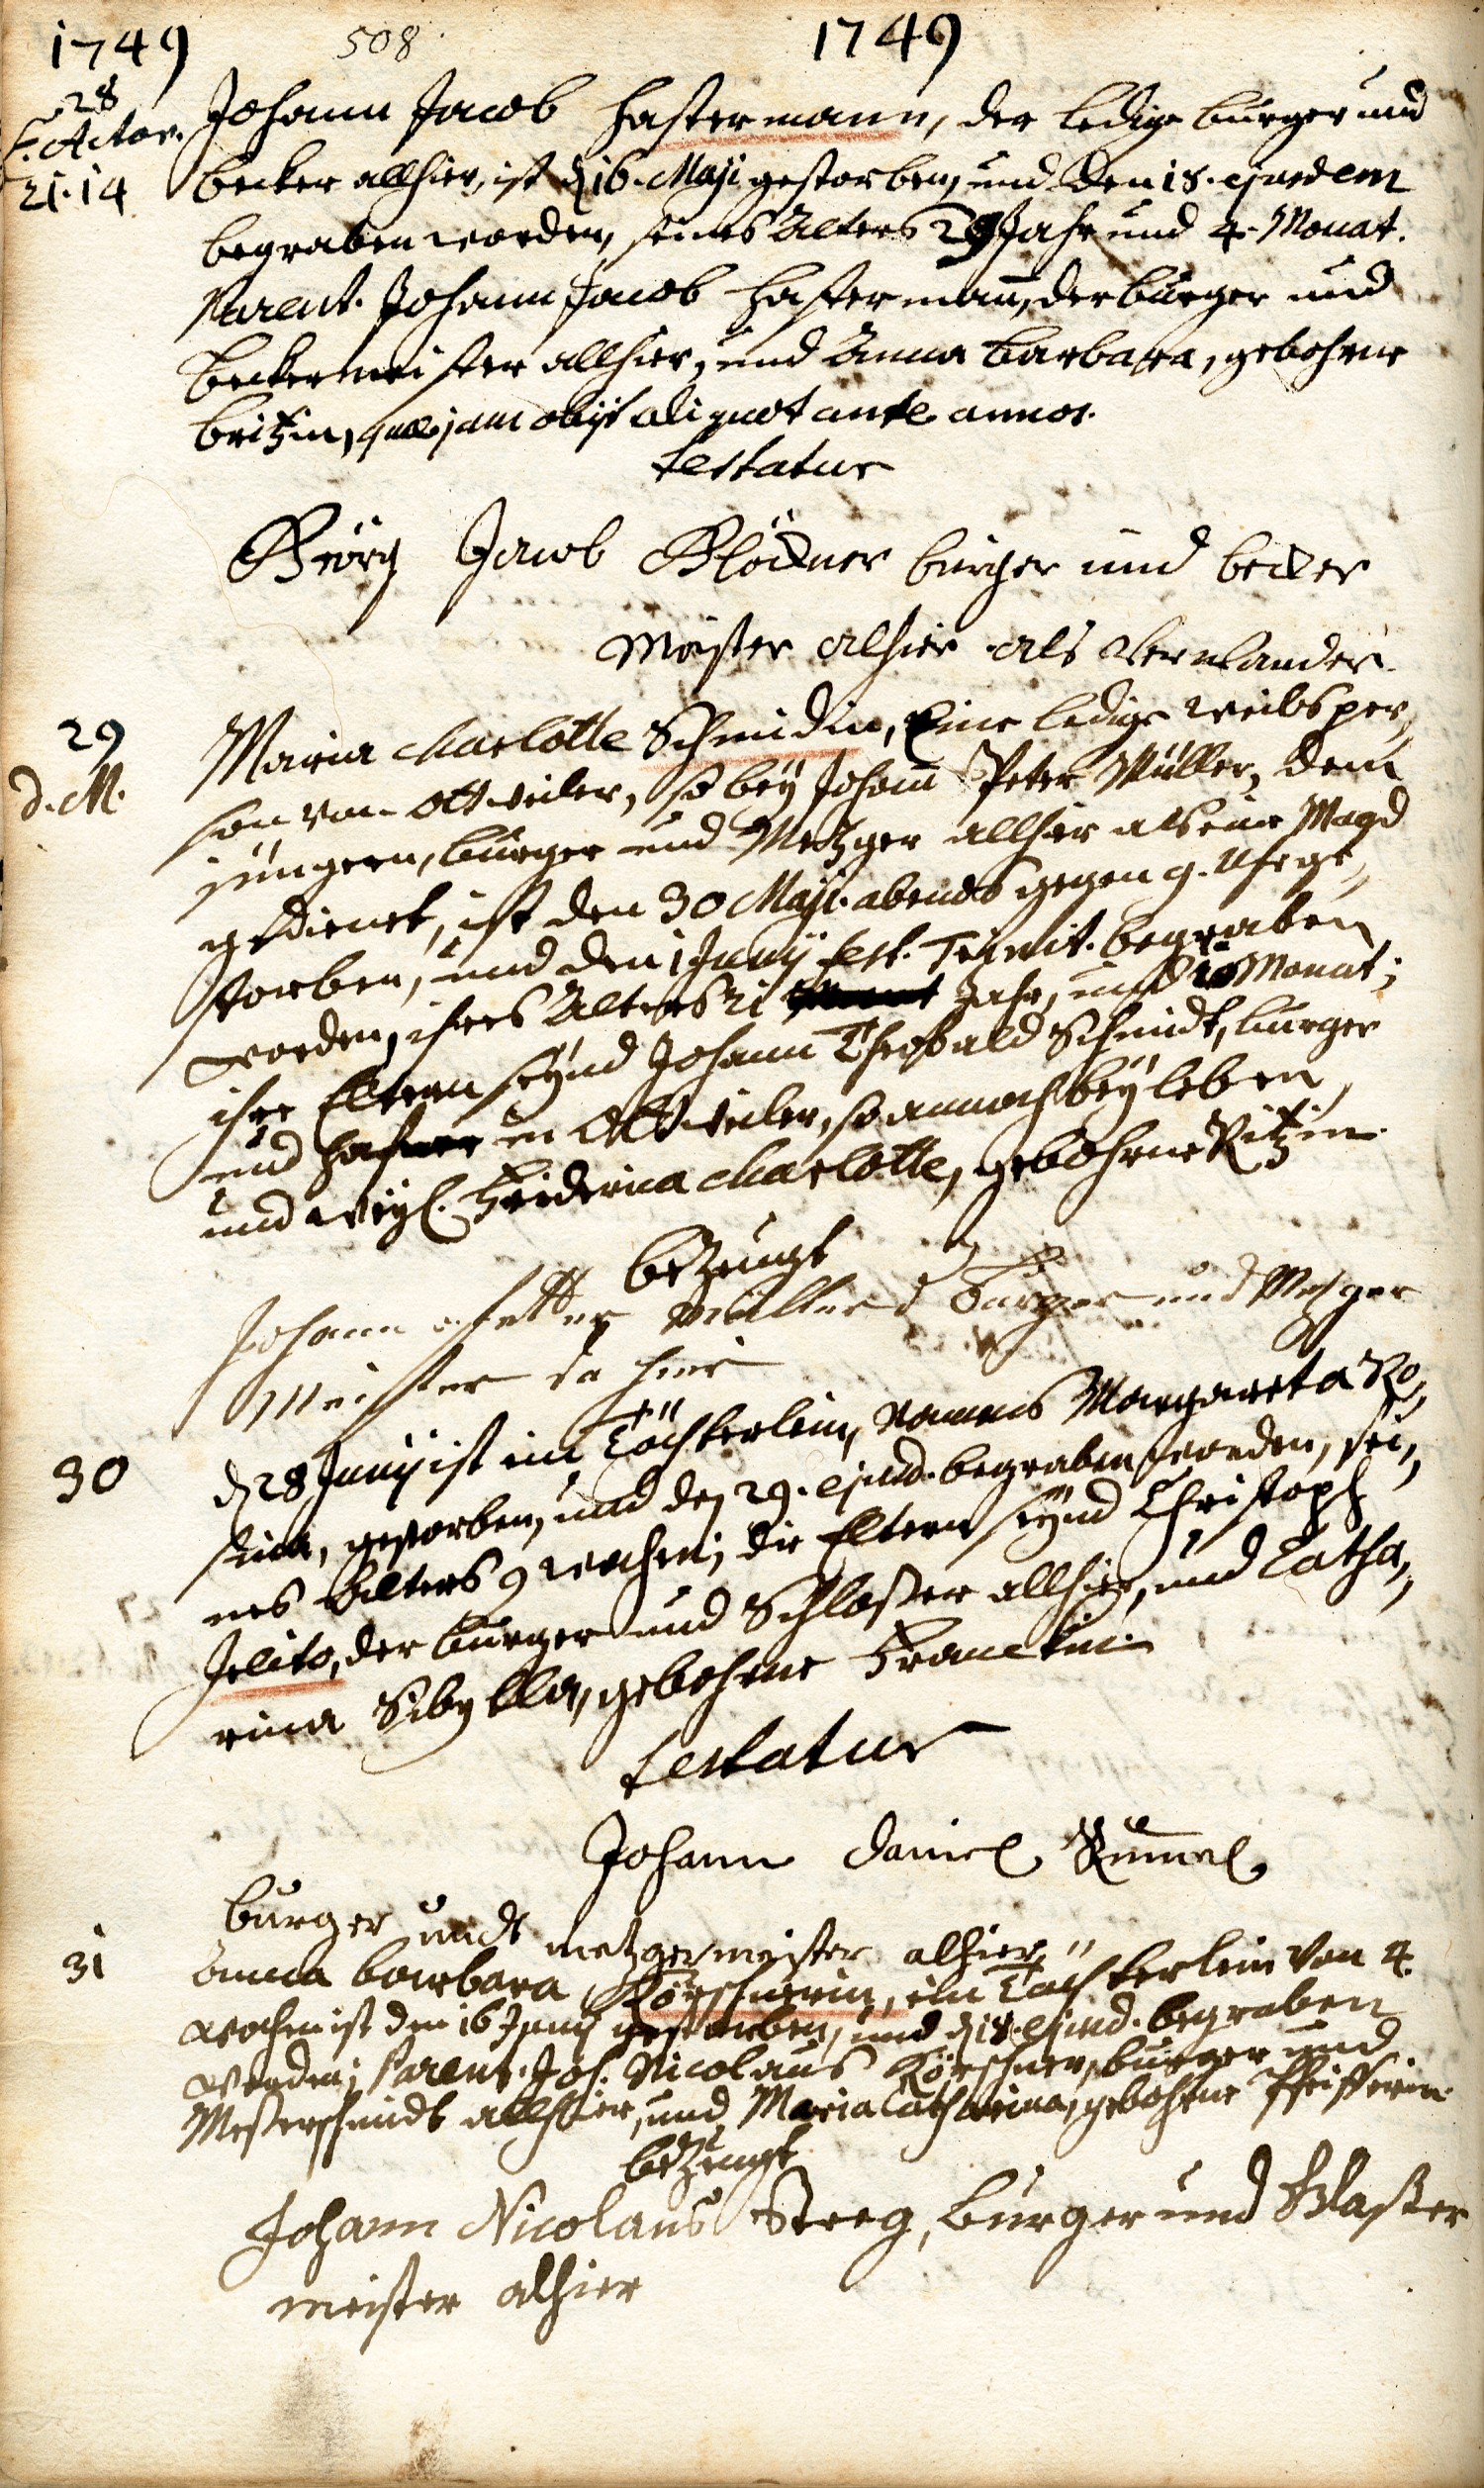 1749 508 1749
28 Johann Jacob Hastermann, der ledige burger und
t. Actor. becker allhier, ist d. 16. Maji gestorben, und den 18. ejusdem
21. 14 begraben worden, seines Alters 29 Jahr und 4. Monat.
Parent. Johann Jacob Hastermann, der burger und
beckermeister allhier, und Anna Barbara, gebohrne
britzin, quae jam obijt aliquot ante annos.
testatur
Georg Jacob Glöckner burger und becker
Meister alhier als Verwander
29 Maria Charlotte Schmidin, Eine ledige weibsper,,
d. M. son von Ottweiler, so bey Johann Peter Müller, dem
jüngern, burger und Metzger allhier als eine Magd
gedienet, ist den 30 Maji. abends gegen 9. Uhr ge,,
storben, und den 1 Junij fest. Trinit. begraben
worden, ihres Alters 21 Jahr, und 10 Monat;
ihre Eltern seynd Johann Theobald Schmidt, burger
und Hafner in Ottweiler, so annoch bey leben,
und weyl. Friderica Charlotte, gebohrne Ritzin.
bezeugt
Johann Petter Müller burger und Metzger
Meister da hier
30 d. 28 Junij ist ein Töchterlein, Namens Margareta Ro,,
sina, gestorben, und den 29. ejusd. begraben worden, sei,,
nes Alters 9 wochen; die Eltern seynd Christoph
Jelito, der burger und Schloßer allhier, und Catha,,
rina Sibylla, gebohrne Franckin
testatur
Johann Daniel Rummel
burger undt metzger meister alhier
31 Anna barbara Körschnerin, ein Töchterlein von 4.
wochen ist den 16 Junij gestorben, und d. 18. ejusd. begraben
worden; Parent. Joh. Nicolaus Körschner, burger und
Messerschmidt allhier, und Maria Catharina, gebohrne Pfeifferin
bezeugt
Johann Nicolaus Steeg, burger und Schloßer
meister alhier